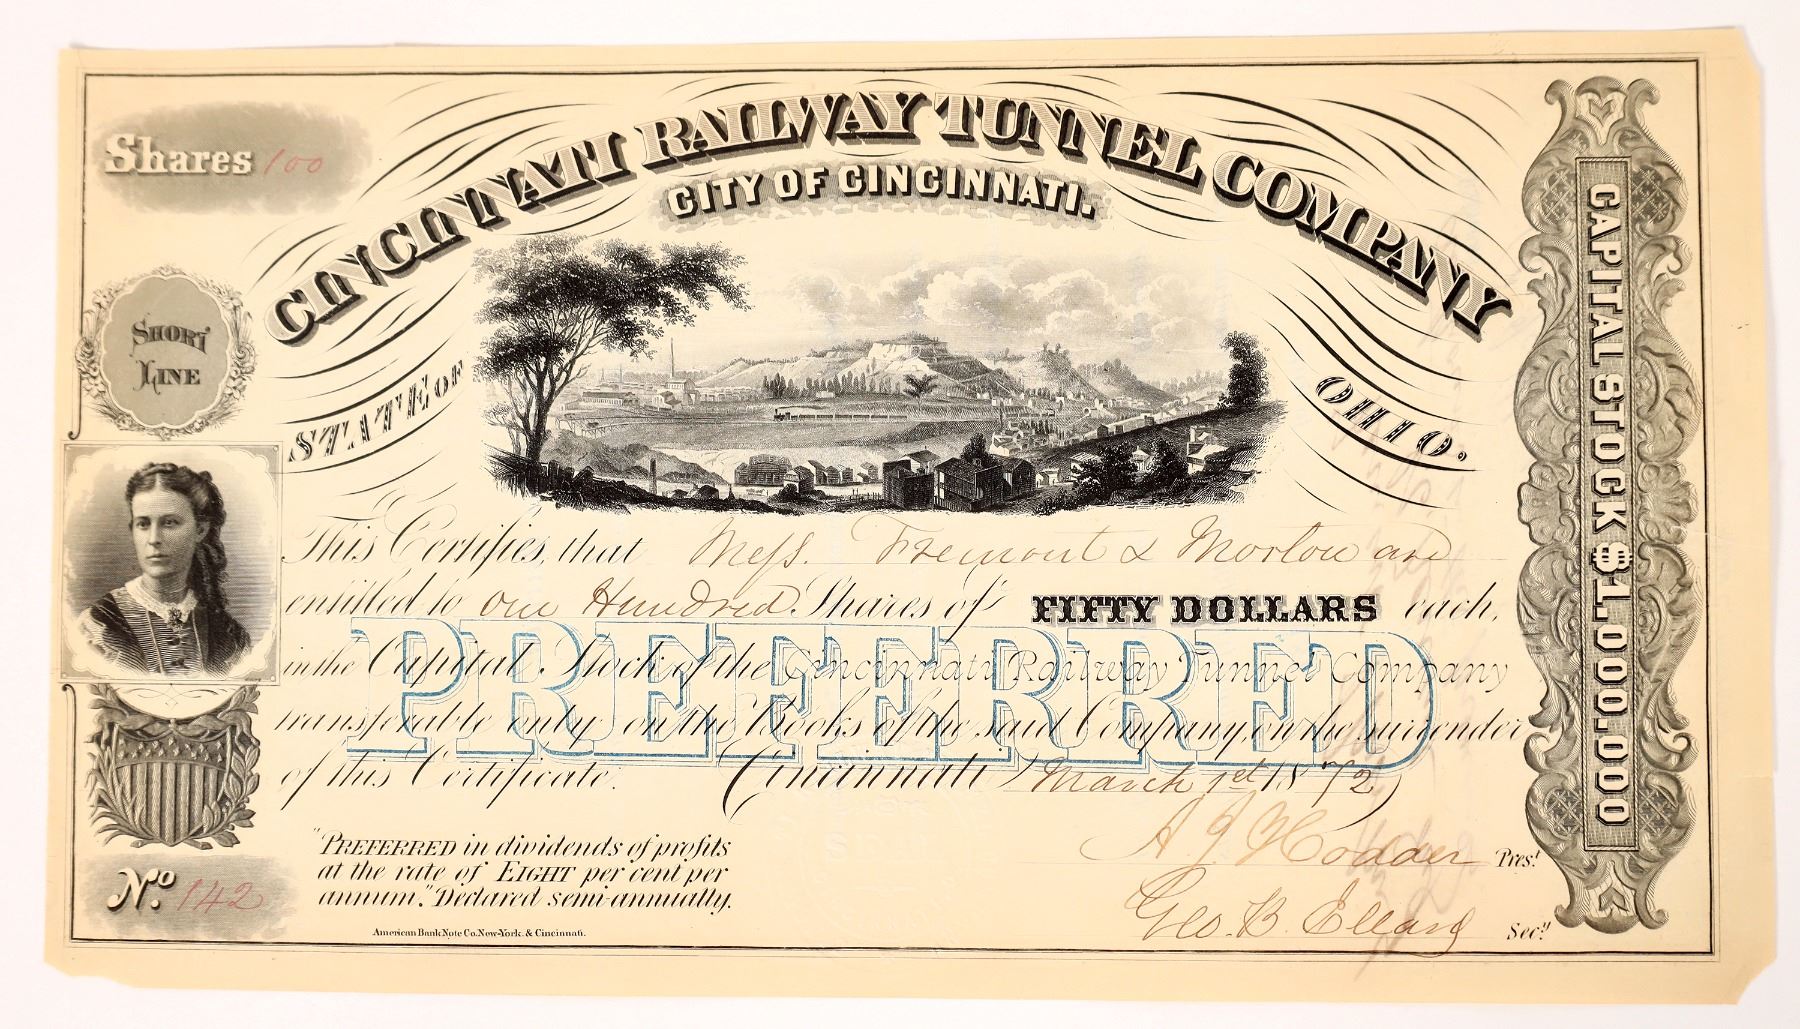 Shares 100
CINCINNATI RAILWAY TUNNEL COMPANY
CITY OF CINCINNATI.
STATE OF OHIO.
SHORT
LINE
This Certifies, that Mess. Fremont & Morton are
entitled to One Hundred Shares of FIFTY DOLLARS each,
in the Capital Stock of the Cincinnati Railway Tunnel Company
transferable only on the Books of the said Company, on the surrender
of this Certificate. Cincinnati, March 1st 1872
PREFERRED
"PREFERRED in dividends of profits
at the rate of EIGHT per cent per
annum." Declared semi-annually.
A J Hodder Prest.
Geo. B. Ellard Secy.
No. 142
American Bank Note Co. New-York. & Cincinnati.
CAPITAL STOCK $1,000,000